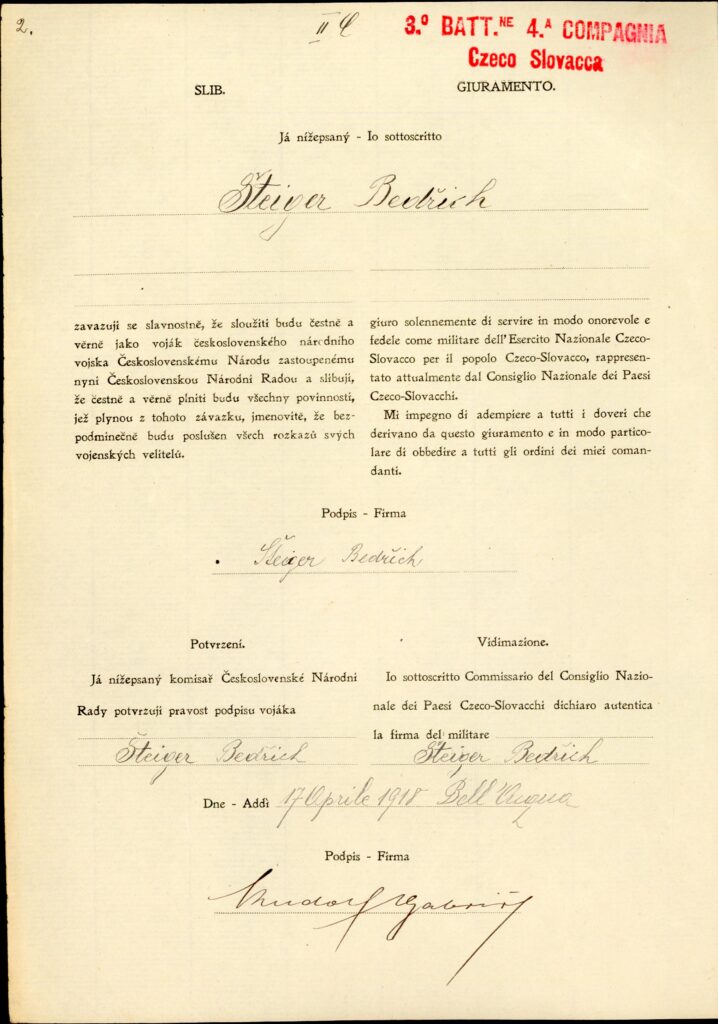 2.
II
3.º BATT.NE 4.A COMPAGNIA
Czeco Slovacca
SLIB.
GIURAMENTO.
Já nížepsaný - Io sottoscritto
Šteiger Bedřich
zavazuji se slavnostně, že sloužiti budu čestně a
věrně jako voják československého národního
vojska Československému Národu zastoupenému
nyní Československou Národní Radou a slibuji,
že čestně a věrně plniti budu všechny povinnosti,
jež plynou z tohoto závazku, jmenovitě, že bez-
podminečně budu poslušen všech rozkazů svých
vojenských velitelů.
giuro solennemente di servire in modo onorevole e
fedele come militare dell'Esercito Nazionale Czeco-
Slovacco per il popolo Czeco-Slovacco, rappresen-
tato attualmente dal Consiglio Nazionale dei Paesi
Czeco-Slovacchi.
Mi impegno di adempiere a tutti i doveri che
derivano da questo giuramento e in modo partico-
lare di obbedire a tutti gli ordini dei miei coman-
danti.
Podpis - Firma
Šteiger Bedřich
Potvrzení.
Já nížepsaný komisař Československé Národní
Rady potvrzuji pravost podpisu vojáka
Šteiger Bedřich
Vidimazione.
Io sottoscritto Commissario del Consiglio Nazio-
nale dei Paesi Czeco-Slovacchi dichiaro autentica
la firma del militare
Šteiger Bedřich
Dne - Addì 17 Aprile 1918
Podpis - Firma
Rudolf Gabriš